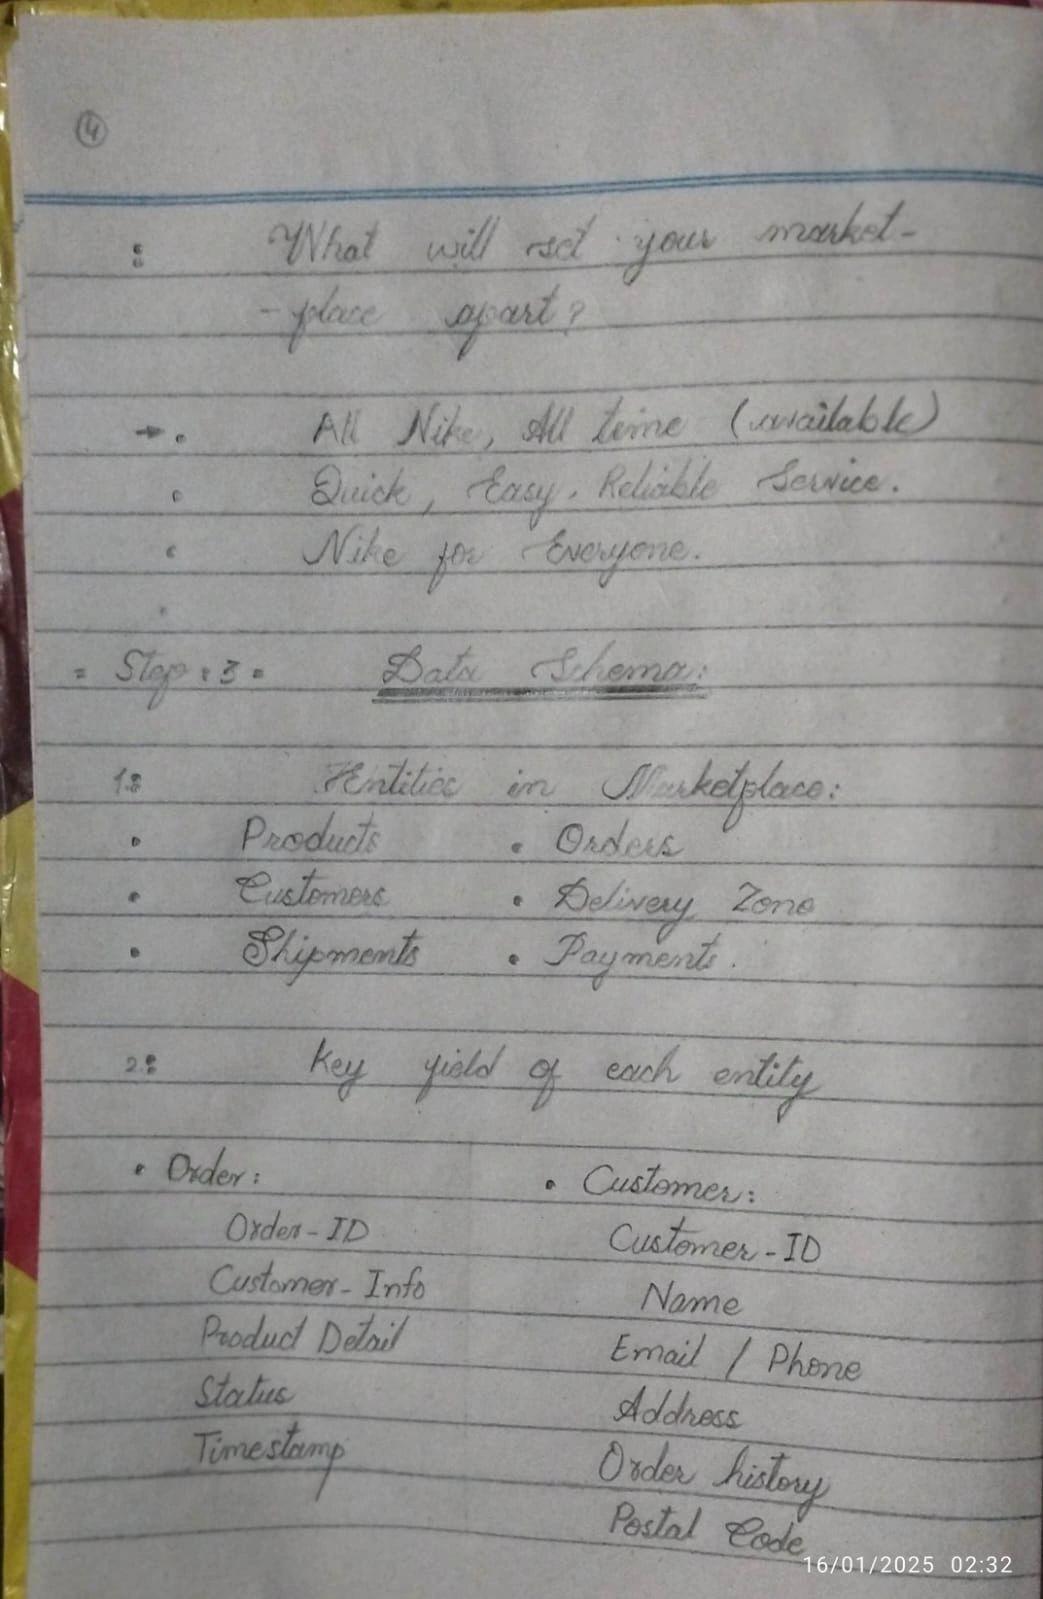 4
: What will set your market-
-place apart?
→ • All Nike, All time (available)
• Quick, Easy, Reliable Service.
• Nike for Everyone.
= Step : 3 = Data Schema:
1: Entities in Marketplace:
• Products • Orders
• Customers • Delivery Zone
• Shipments • Payments.
2: Key yield of each entity
• Order: • Customer:
Order-ID Customer-ID
Customer-Info Name
Product Detail Email / Phone
Status Address
Timestamp Order history
Postal Code
16/01/2025 02:32